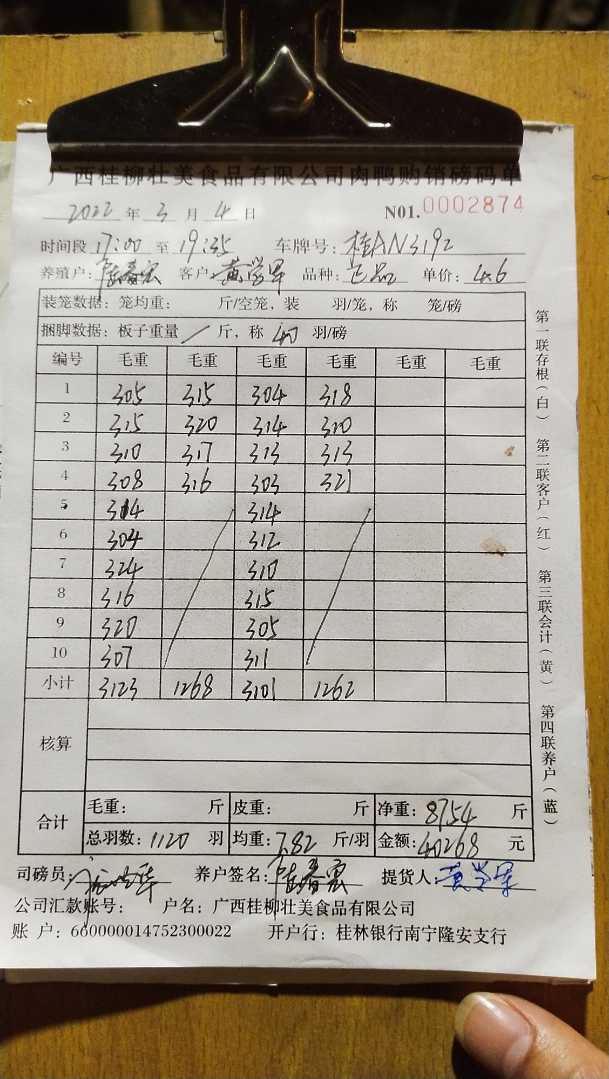 广西桂柳壮美食品有限公司肉鸭购销磅码单
2022 年 3 月 4 日 N01.0002874
时间段 17:00 至 19:35 车牌号: 桂AN3192
养殖户: 客户: 黄学军 品种: 单价: 4.6
装笼数据: 笼均重: 斤/空笼, 装 羽/笼, 称 笼/磅
捆脚数据: 板子重量 / 斤, 称 40 羽/磅
编号 毛重 毛重 毛重 毛重 毛重 毛重
1 305 315 304 318
2 315 320 314 310
3 310 317 313 313
4 308 316 303 321
5 314 314
6 304 312
7 324 310
8 316 315
9 320 305
10 307 311
小计 3123 1268 3101 1262
核算
合计 毛重: 斤 皮重: 斤 净重: 8754 斤
总羽数: 1120 羽 均重: 7.82 斤/羽 金额: 40268 元
司磅员: 养户签名: 提货人: 黄学军
公司汇款账号: 户名: 广西桂柳壮美食品有限公司
账 户: 660000014752300022 开户行: 桂林银行南宁隆安支行
第一联存根(白) 第二联客户(红) 第三联会计(黄) 第四联养户(蓝)